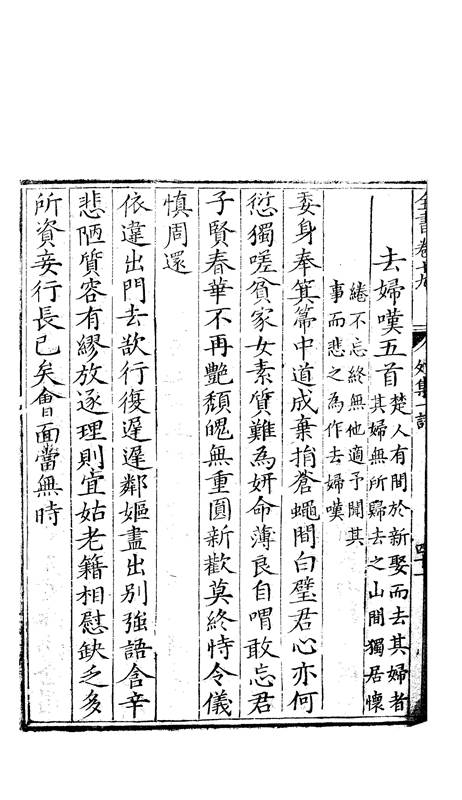 全書卷十九
去婦嘆五首
楚人有間於新娶而去其婦者
其婦無所歸去之山間獨居懷
綣不忘終無他適予聞其
事而悲之為作去婦嘆
委身奉箕箒中道成棄捎蒼蠅間白璧君心亦何
愆獨嗟貧家女素質難為妍命薄良自喟敢忘君
子賢春華不再艷頹魄無重圓新歡莫終恃令儀
慎周還
依違出門去欲行復遲遲鄰嫗盡出別強語含辛
悲陋質容有繆放逐理則宜姑老籍相慰缺乏多
所資妾行長已矣會面當無時